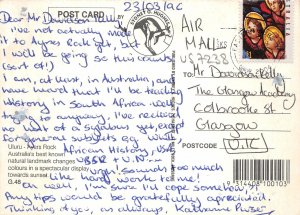 23/03/96
POST CARD
Dear Mr Davidson Kelly,
I've not actually made
it to Ayres Rock yet, but
I will be going so this counts
(sort of!)
I am, at last, in Australia, and
have heard that I'll be teaching
History in South Africa. Well,
trying to anyway. I've received
no word of a syllabus yet, except
for general subjects eg
African History, USA
USSR + U.N. -
urgh! sounds too much
like hard work to me!
Oh well, I'm sure I'll cope somehow!
Any tips would be gratefully appreciated.
Thinking of you, as always, Katharine
Uluru - Ayers Rock
Australia's best known
natural landmark changes
colours in a spectacular display
towards sunset
G.45
AIR
MAIL
Mr Davidson Kelly
The Glasgow Academy
Colbrooke St
Glasgow
POSTCODE
(U.K)
9 314408 100103